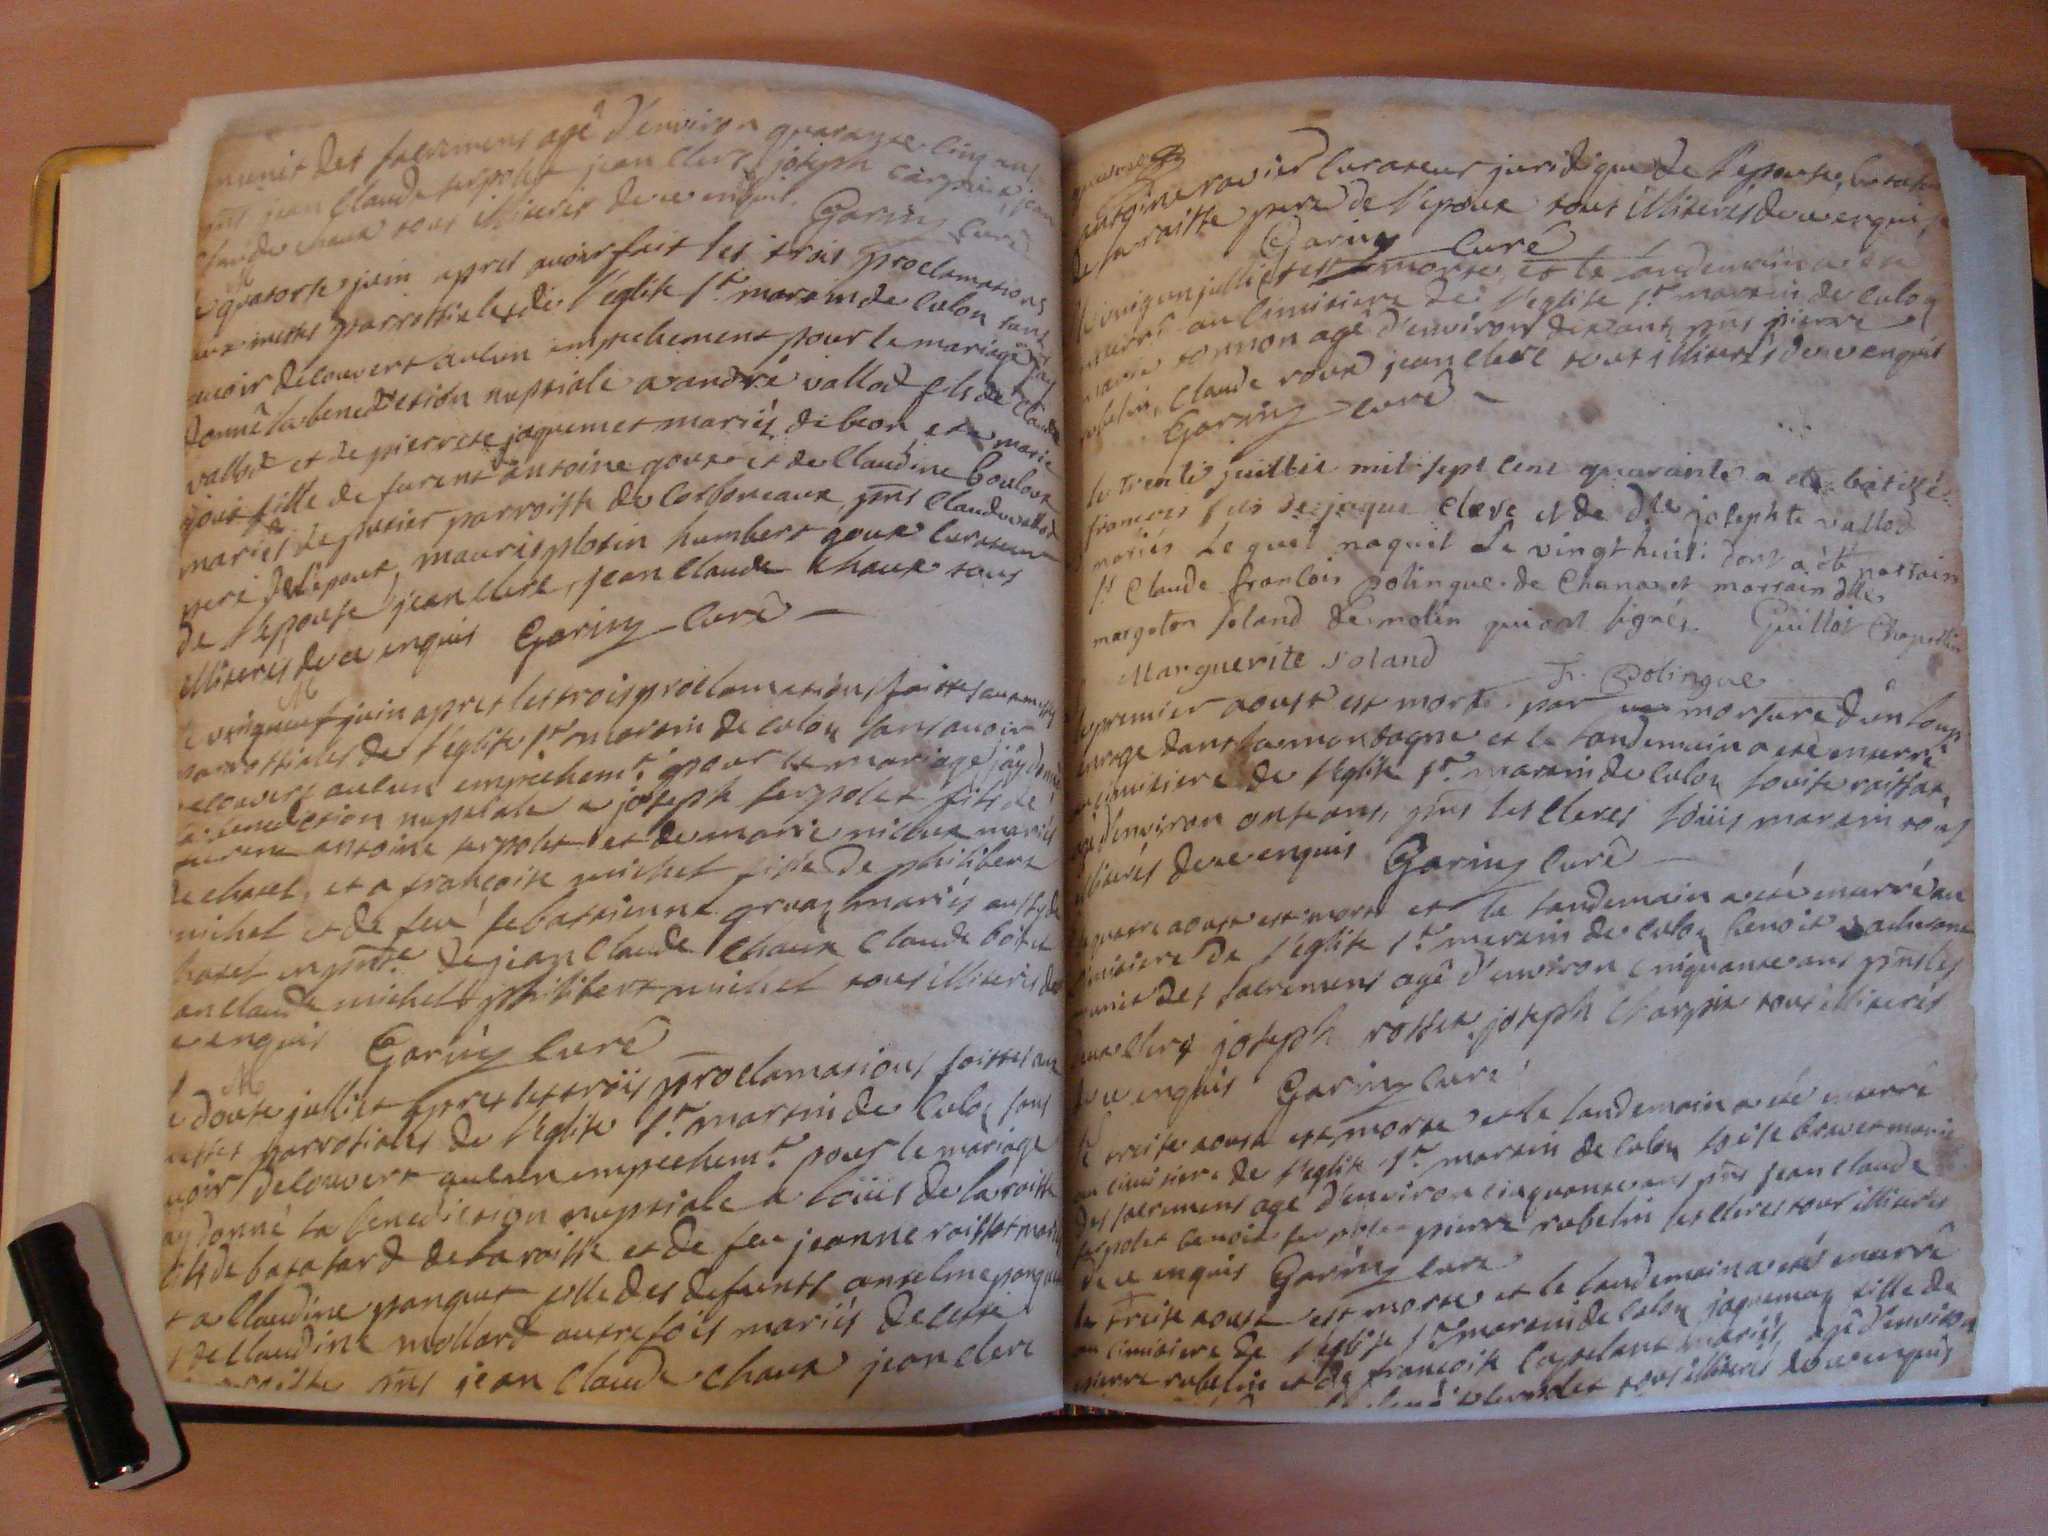 munit des sacremens agé d'environ quarante cinq ans
pnts jean Claude serpolet jean clerc joseph carpin jean
Claude chaux tous illiterés de ce enquis. Garing curé
M
le quatorse juin apres avoir fait les trois proclamations
aux messes parrossiales de l'eglise St. martin de Culoz sans
avoir decouvert aucun empechement pour le mariage j'ay
donné la benediction nuptiale a andré vallod fils de Claude
vallod et de pierrete jaquemet mariés de beon et a marie
goux fille de furent antoine goux et de Claudine Bouloux
mariés de parroisse de Corboneaux pnts Claude vallod
pere de l'epoux, mauris plotin humbert goux curateur
de l'epouse jean clerc, jean Claude chaux tous
illiterés de ce enquis Garing curé
M
le vingneuf juin apres les trois proclamations faittes aux messes
parrossiales de l'eglise St. martin de culoz sans avoir
decouvert aucun empechemt. pour le mariage j'ay donné
la benediction nuptiale a joseph serpolet fils de
antoine serpolet et de marie mariés
de chatel, et a françoise michet fille de philibert
michet et de feu sebastienne gruaz mariés aussy de
chatel en pnce. de jean Claude chaux Claude
jean claude michet philibert michet tous illiterés de
ce enquis Garing curé
M
le douse julliet apres les trois proclamations faittes aux
messes parrotiales de l'eglise St. martin de Culoz sans
avoir decouvert aucun empechemt. pour le mariage
ay donné la benediction nuptiale a loüis de la raitte
fils de de la raitte et de feu jeanne raissat mariés
et a Claudine panqut fille des defunts anselme panqut
et de Claudine mollard autrefois mariés de cette
parroisse pnts jean Claude chaux jean clerc
antoine ravier curateur juridique de l'epouse,
de la raitte pere de l'epoux tous illiterés de ce enquis
Garing curé
le vingun julliet est morte et le landemain a eté
enterré au cimitiere de l'eglise St. martin de culoz
marie tonnon agé d'environ dix ans pnts pierre
rubelin, Claude roux jean clerc tous illiterés de ce enquis
Garing curé
le trente juillet mil sept cent quarante a ete batizé
francois fils de jaque clerc et de dlle josephte vallod
mariés Lequel naquit Le vingt huit: dont a été parrain
sr Claude françois polingue de Chana et marrain dlle
margoton soland de molin qui ont signés. Guillot Chapellin
Marguerite soland Fr. Polingue
le premier aoust est morte par une morsure d'un loup
enrage dans la montagne et le landemain a eté enterré
au cimitiere de l'eglise St. martin de culoz louise raissat
agé d'environ onse ans, pnts les clercs loüis martin tous
illiterés de ce enquis Garing curé
le quatre aoust est mort et le landemain a eté enterré au
cimitiere de l'eglise St. martin de culoz benoit
munit des sacremens agé d'environ cinquante ans pnts les
deux clercs joseph rosset joseph Charpin tous illiterés
de ce enquis Garing curé
le treise aoust est morte et le landemain a eté enterré
au cimitiere de l'eglise St. martin de culoz louise brevet munie
des sacremens agé d'environ cinquante ans pnts jean claude
serpolet benoit serpolet pierre rubelin les clercs tous illiterés
de ce enquis Garing curé
le treise aoust est morte et le landemain a eté enterré
au cimitiere de l'eglise St martin de culoz jaquemaz fille de
pierre rubelin et de françoise mariés, agé d'environ
serpolet tous illiterés de ce enquis